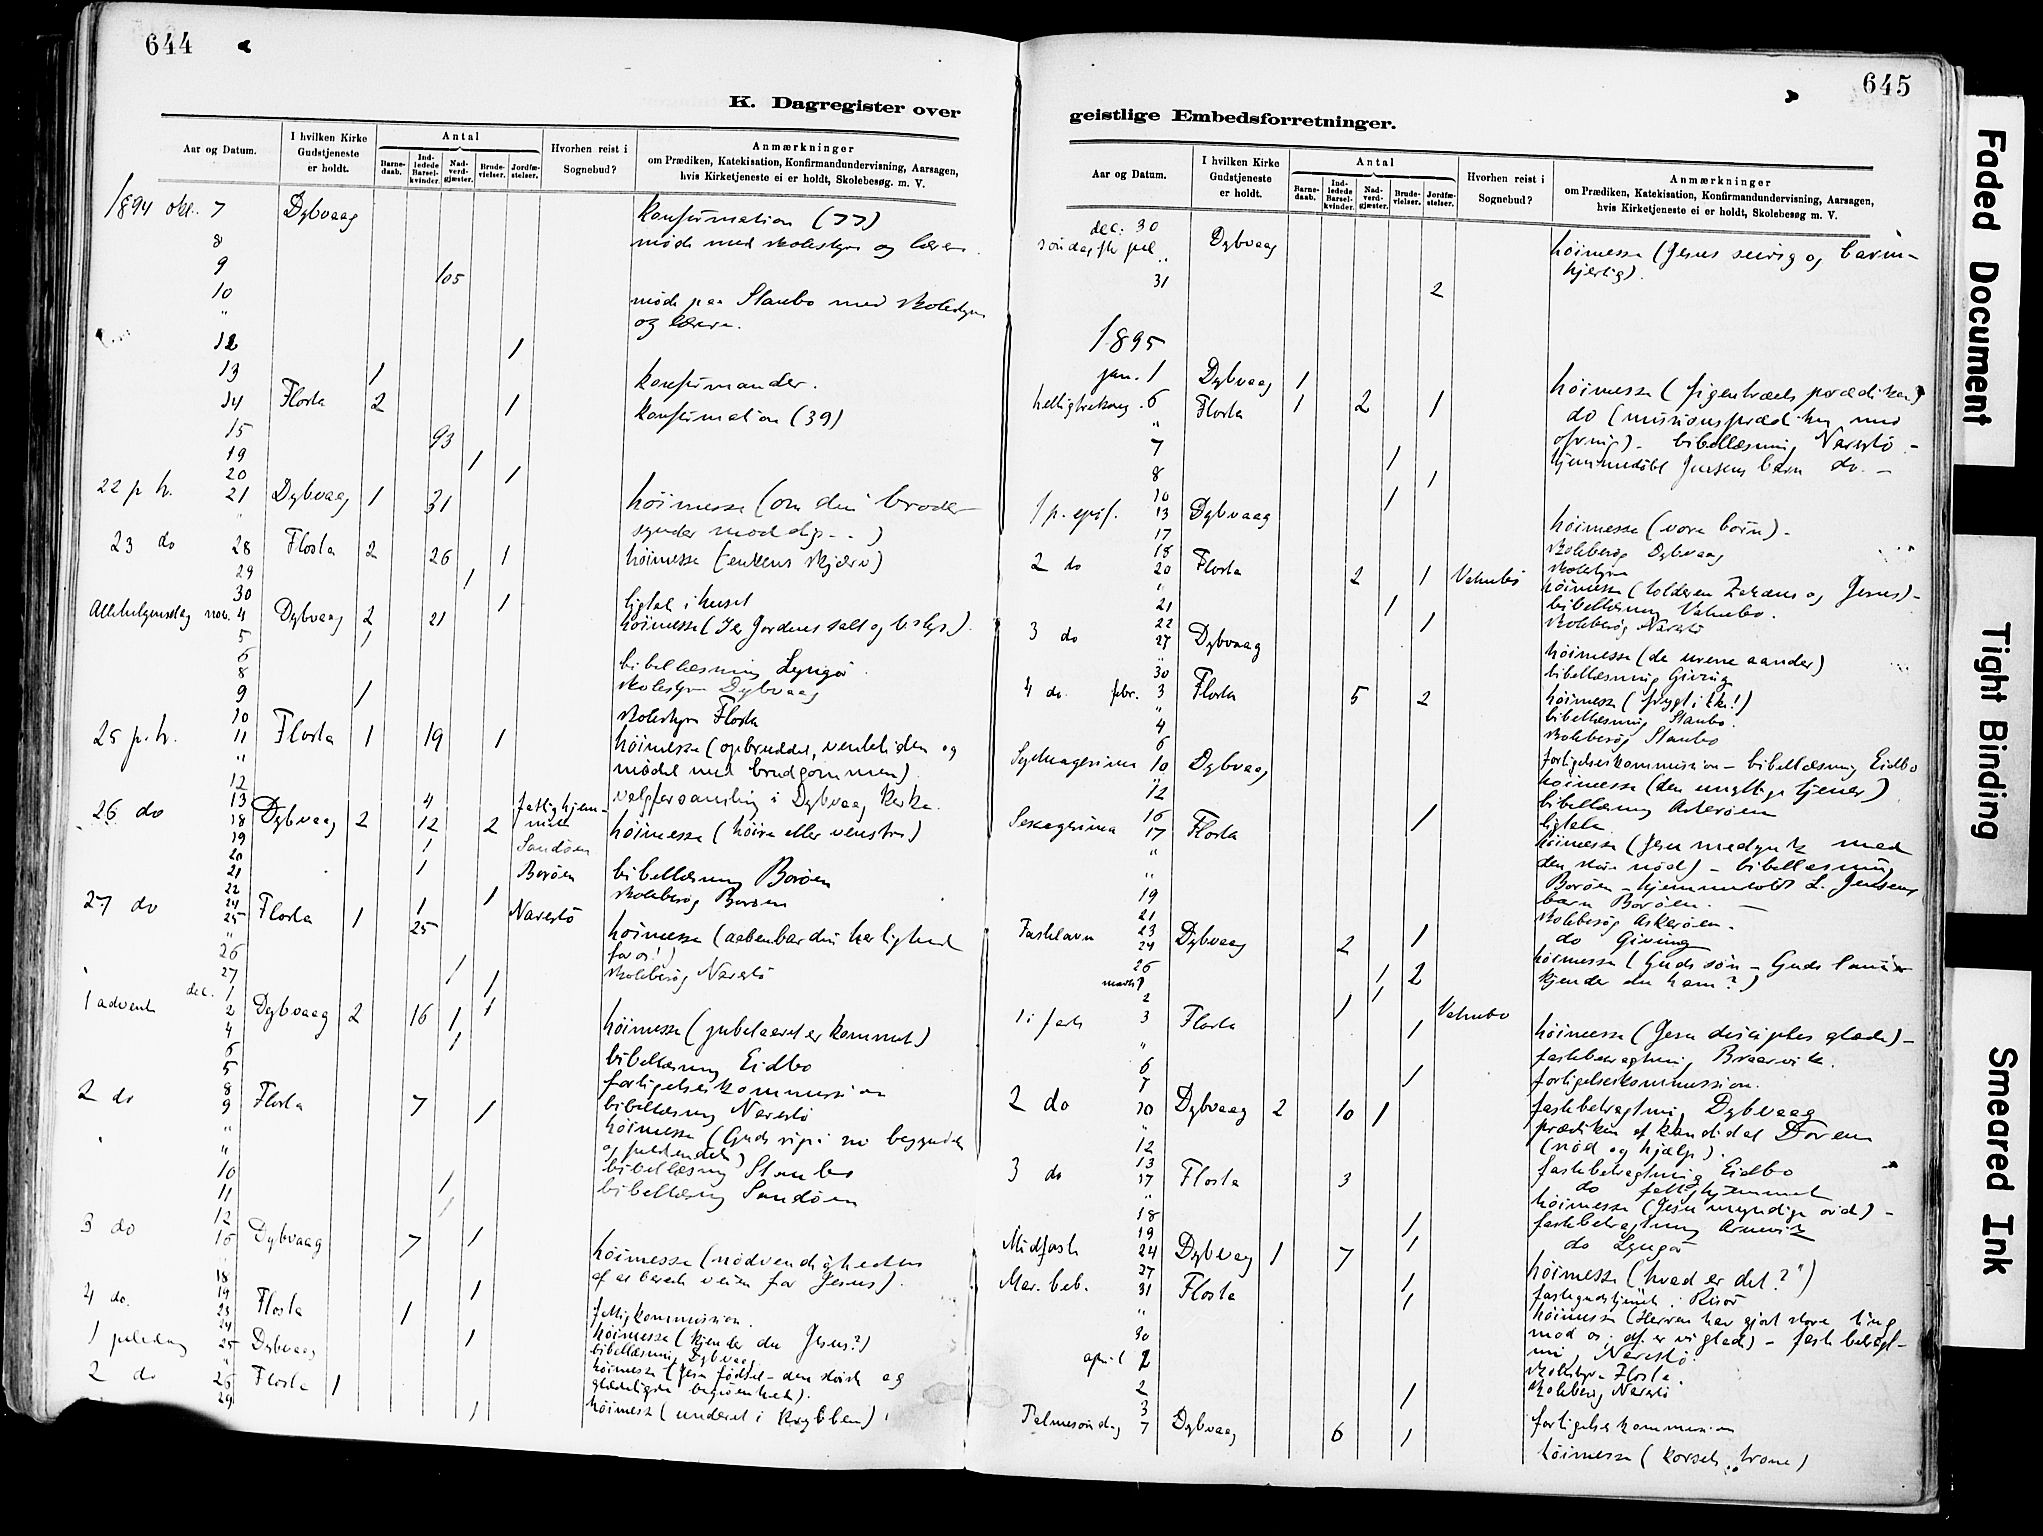 644
K. Dagregister over
Aar og Datum.
I hvilken Kirke Gudstjeneste er holdt.
Antal
Barne-daab.
Ind-ledede Barsel-kvinder.
Nad-verd-gjæster.
Brude-vielser.
Jordfæ-stelser.
Hvorhen reist i Sognebud?
Anmærkninger
om Prædiken, Katekisation, Konfirmandundervisning, Aarsagen,
hvis Kirketjeneste ei er holdt, Skolebesøg. m. V.
1894 okt. 7 Dybvaag konfirmation (77)
8 møde med skolestyre og lærere.
9 105
10
" møde paa Staubo med skolestyre
og lærere.
12 1
13 1 konfirmander.
14 Flosta 2 1 konfirmation (39)
15 93
19 1
20 1
22 p. tr. 21 Dybvaag 1 31 høimesse (om din broder
" synder mod dig - - )
23 do 28 Flosta 2 26 1 høimesse (enkens skjærv)
29 1
30 1 ligtale i huset
Allehelgensdag nov. 4 Dybvaag 2 21 høimesse (I er Jordens salt og lys).
5 1
6 bibellæsning Lyngø.
8 skolestyre Dybvaag
9 1
10 skolestyre Flosta
25 p. tr. 11 Flosta 1 19 1 høimesse (opbruddet, ventetiden og
" mødet med brudgommen).
12
13 4 fattighjem- valgforsamling i Dybvaag kirke.
26 do 18 Dybvaag 2 12 2 met høimesse (høire eller venstre)
19 1 Sandøen
20 1 Borøen bibellæsning Borøen
21 skolebesøg Borøen
22 1
24 1 Narestø
27 do 25 Flosta 1 25 høimesse (aabenbar din herlighed
" for os!)
26 skolebesøg Narestø
27 1
dec. 1 1
1 advent 2 Dybvaag 2 16 1 1 høimesse (jubelaaret er kommet)
4 1
6 bibellæsning Eidbo
5 forligelseskommission
8 bibellæsning Narestø
2 do 9 Flosta 7 1 høimesse (Guds rige i sin begyndelse
" og fuldendelse)
" bibellæsning Staubo
10 1 bibellæsning Sandøen
11
12
3 do 16 Dybvaag 7 1 høimesse (nødvendigheden
af at berede veien for Jesus).
18
19 1 fattigkommission.
4 do. 23 Flosta 1 høimesse (kjender du Jesus?)
24 bibellæsning Dybvaag
1 juledag 25 Dybvaag 1 høimesse (Jesu fødsel - den største og
" glædeligste begivenhed).
2 do 26 Flosta 1 høimesse (underet i krybben)
29 1
645
geistlige Embedsforretninger.
Aar og Datum.
I hvilken Kirke Gudstjeneste er holdt.
Antal
Barne-daab.
Ind-ledede Barsel-kvinder.
Nad-verd-gjæster.
Brude-vielser.
Jordfæ-stelser.
Hvorhen reist i Sognebud?
Anmærkninger
om Prædiken, Katekisation, Konfirmandundervisning, Aarsagen,
hvis Kirketjeneste ei er holdt, Skolebesøg m. V.
dec. 30
søndag fter jul Dybvaag høimesse (Jesus seirrig og barm-
hjertig).
31 2
1895
jan. 1 Dybvaag 1 høimesse (figentræets prædiken)
helligtrekong. 6 Flosta 1 2 1 do (missionsprædiken med
" ofring). bibellæsning Narestø -
7 1 hjemmedøbt Jensens barn do. -
8 1
10 1
1 p. epif. 13 Dybvaag høimesse (vore børn) -
17 skolebesøg Dybvaag
18 skolestyre
2 do 20 Flosta 2 1 Vatnebo høimesse (tolderen Zakæus og Jesus) -
" bibellæsning Vatnebo.
21 1 skolebesøg Narestø
22 1
3 do 27 Dybvaag høimesse (de urene aander)
" bibellæsning Giving
30
4 do. febr. 3 Flosta 5 2 høimesse (frygt ikke!)
" bibellæsning Staubo.
4 skolebesøg Staubo
6 forligelseskommission - bibellæsning Eidbo
Septuagesima 10 Dybvaag høimesse (den unyttige tjener)
" bibellæsning Askerøen
12 ligtale
16 1
Sexagesima 17 Flosta høimesse (Jesu medynk med
" den store nød) - bibellæsning
" Borøen - hjemmedøbt L. Jensens
19 barn Borøen. -
21 skolebesøg Askerøen.
23 1 do Giving
Fastelavn 24 Dybvaag 2 høimesse (Guds søn - Guds lam -
26 1 2 kjender du ham?)
marts 1 1
2 1 Vatnebo
1 i faste 3 Flosta 1 høimesse (Jesu disciples glæde) -
" fastebetragtning Braarvik.
6 forligelseskommission.
7 1 fastebetragtning Dybvaag
2 do 10 Dybvaag 2 10 1 prædiken af kandidat Doren
" (nød og hjælp).
12 fastebetragtning Eidbo
13 do fattighjemmet
3 do 17 Flosta 3 høimesse (Jesu myndige ord) -
" fastebetragtning Arnevik
18 1 do Lyngø
19 1
Midfaste 24 Dybvaag 1 7 høimesse (hvad er det?")
27 1 fastegudstjeneste i Risør
Mar. beb. 31 Flosta 1 høimesse (Herren har gjort store ting
" mod os; af er vi glade) - fastebetragt-
30 ning Narestø.
april 1 skolestyre Flosta.
2 1 skolebesøg Narestø
3 forligelseskommission
Palmesøndag 7 Dybvaag 6 1 høimesse (korsets trone)
Faded Document
Tight Binding
Smeared Ink